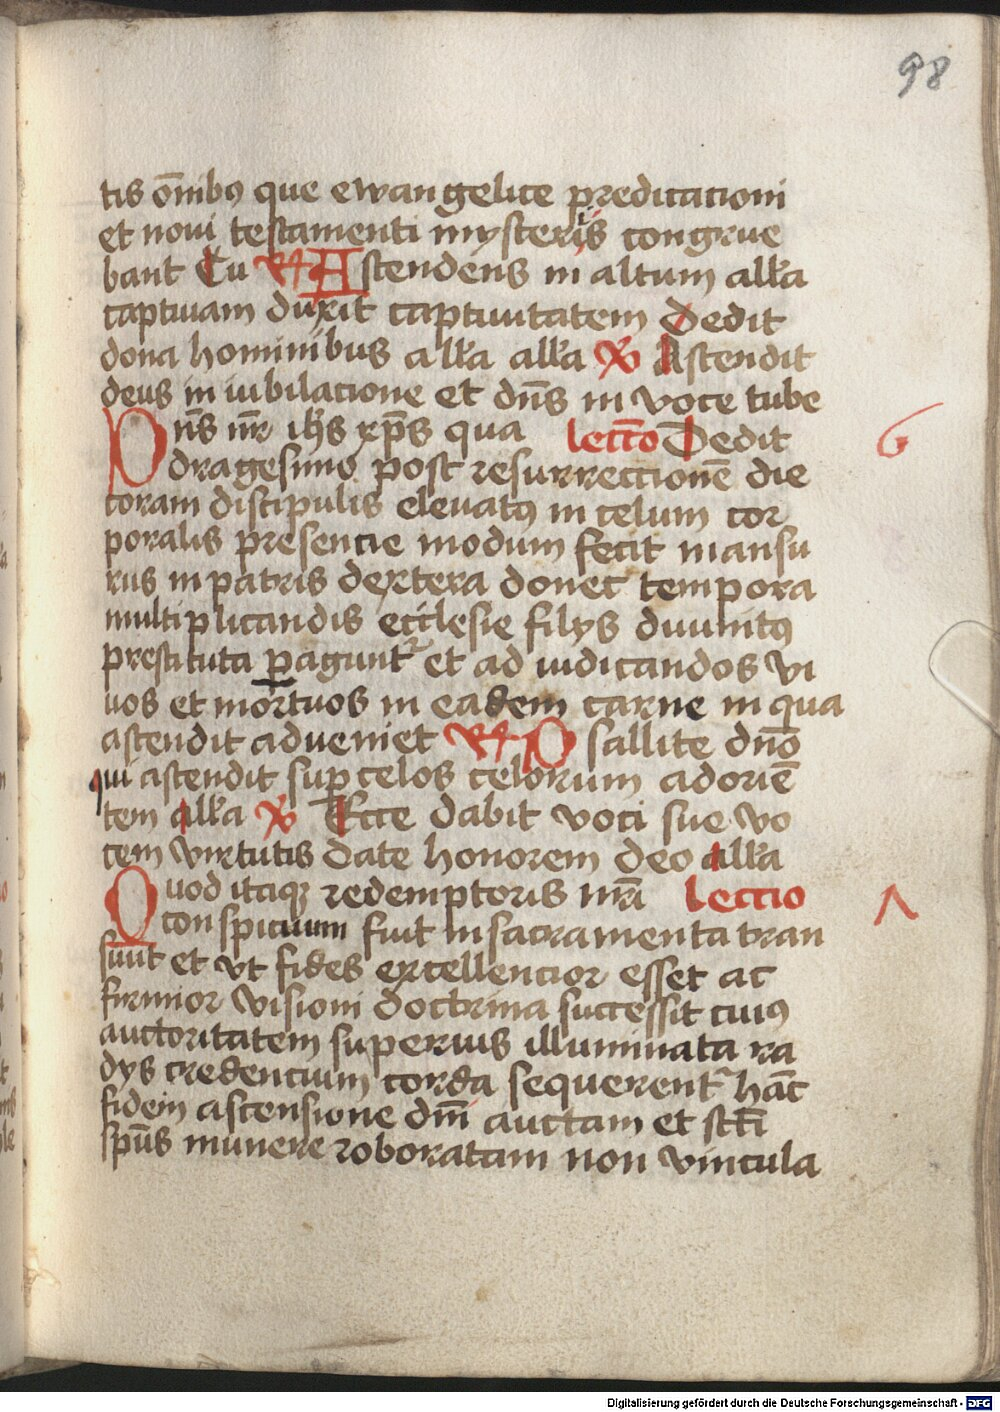 98
tis om̄ibꝯ que ewangelice predicacioni
et noui testamenti mysteriis congrue
bant Tu ℞ Astendens in altum alĺa
captiuam duxit captiuitatem Dedit
dona hominibus alĺa alĺa ℣ Ascendit
deus in iubilacione et dn̄s in voce tube
Dn̄s nr̄ ih̄s xp̄s qua lectc̄o Dedit 6
dragesimo post resurrectionē die
coram discipulis eleuatꝯ in celum cor
poralis presencie modum fecit mansu
rus in patris dextera donec tempora
multiplicandis ecclesie filys diuinitꝯ
prestituta ꝑaguntᷣ et ad iudicandos vi
uos et mortuos in eadem carne in qua
ascendit adueniet ℞ Psallite dn̄o
qui ascendit suꝑ celos celorum ad oriē
tem alĺa ℣ Ecce dabit voci sue vo
cem virtutis date honorem deo alĺa
Quod itaqꝫ redemptoris nr̄i Lectio Λ
conspicuum fuit in sacramenta tran
siuit et vt fides excellencior esset ac
firmior visioni doctrina successit cuiꝯ
auctoritatem superius illuminata ra
dys credencium corda sequerentᷣ hāc
fidem ascensione dm̄i auctam et sct̄i
sp̄us munere roboratam non vincula
Digitalisierung gefördert durch die Deutsche Forschungsgemeinschaft - DFG